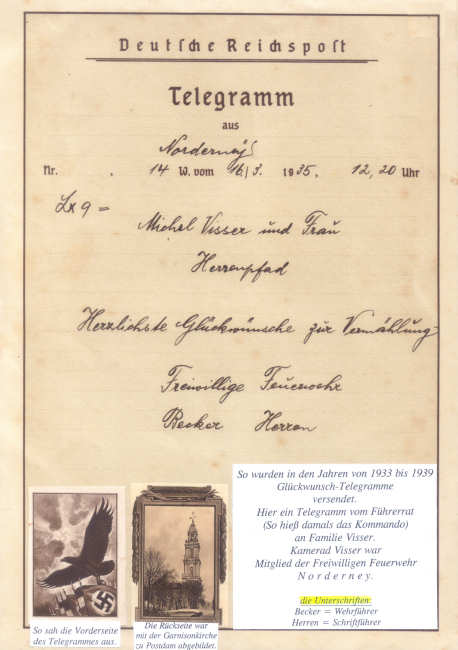 Deutsche Reichspost
Telegramm
aus
Norderney
Nr. . 14 W. vom 16/3. 1935. 12,20 Uhr
Lx 9 =
Michel Visser und Frau
Herrenpfad
Herzlichste Glückwünsche zur Vermählung
Freiwillige Feuerwehr
Becker Herren
So wurden in den Jahren von 1933 bis 1939
Glückwunsch-Telegramme
versendet.
Hier ein Telegramm vom Führerrat
(So hieß damals das Kommando)
an Familie Visser.
Kamerad Visser war
Mitglied der Freiwilligen Feuerwehr
N o r d e r n e y.
die Unterschriften:
Becker = Wehrführer
Herren = Schriftführer
So sah die Vorderseite
des Telegrammes aus.
Die Rückseite war
mit der Garnisonkirche
zu Postdam abgebildet.